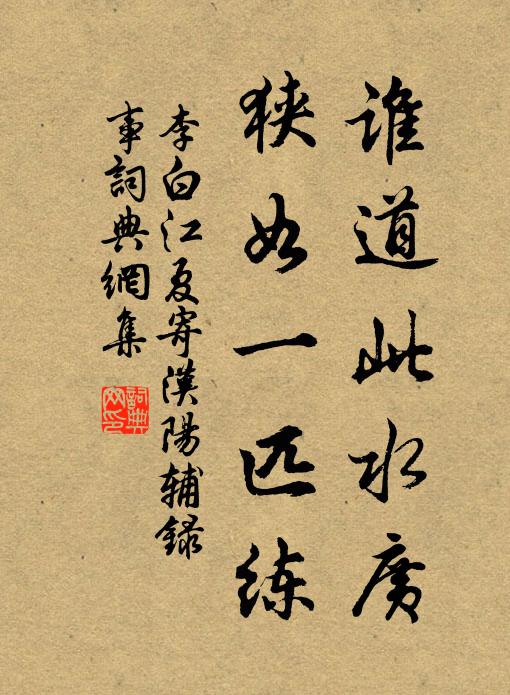 誰道此水廣
狹如一匹练
李白江夏寄漢陽輔録
事詞典網集
詞典
网印